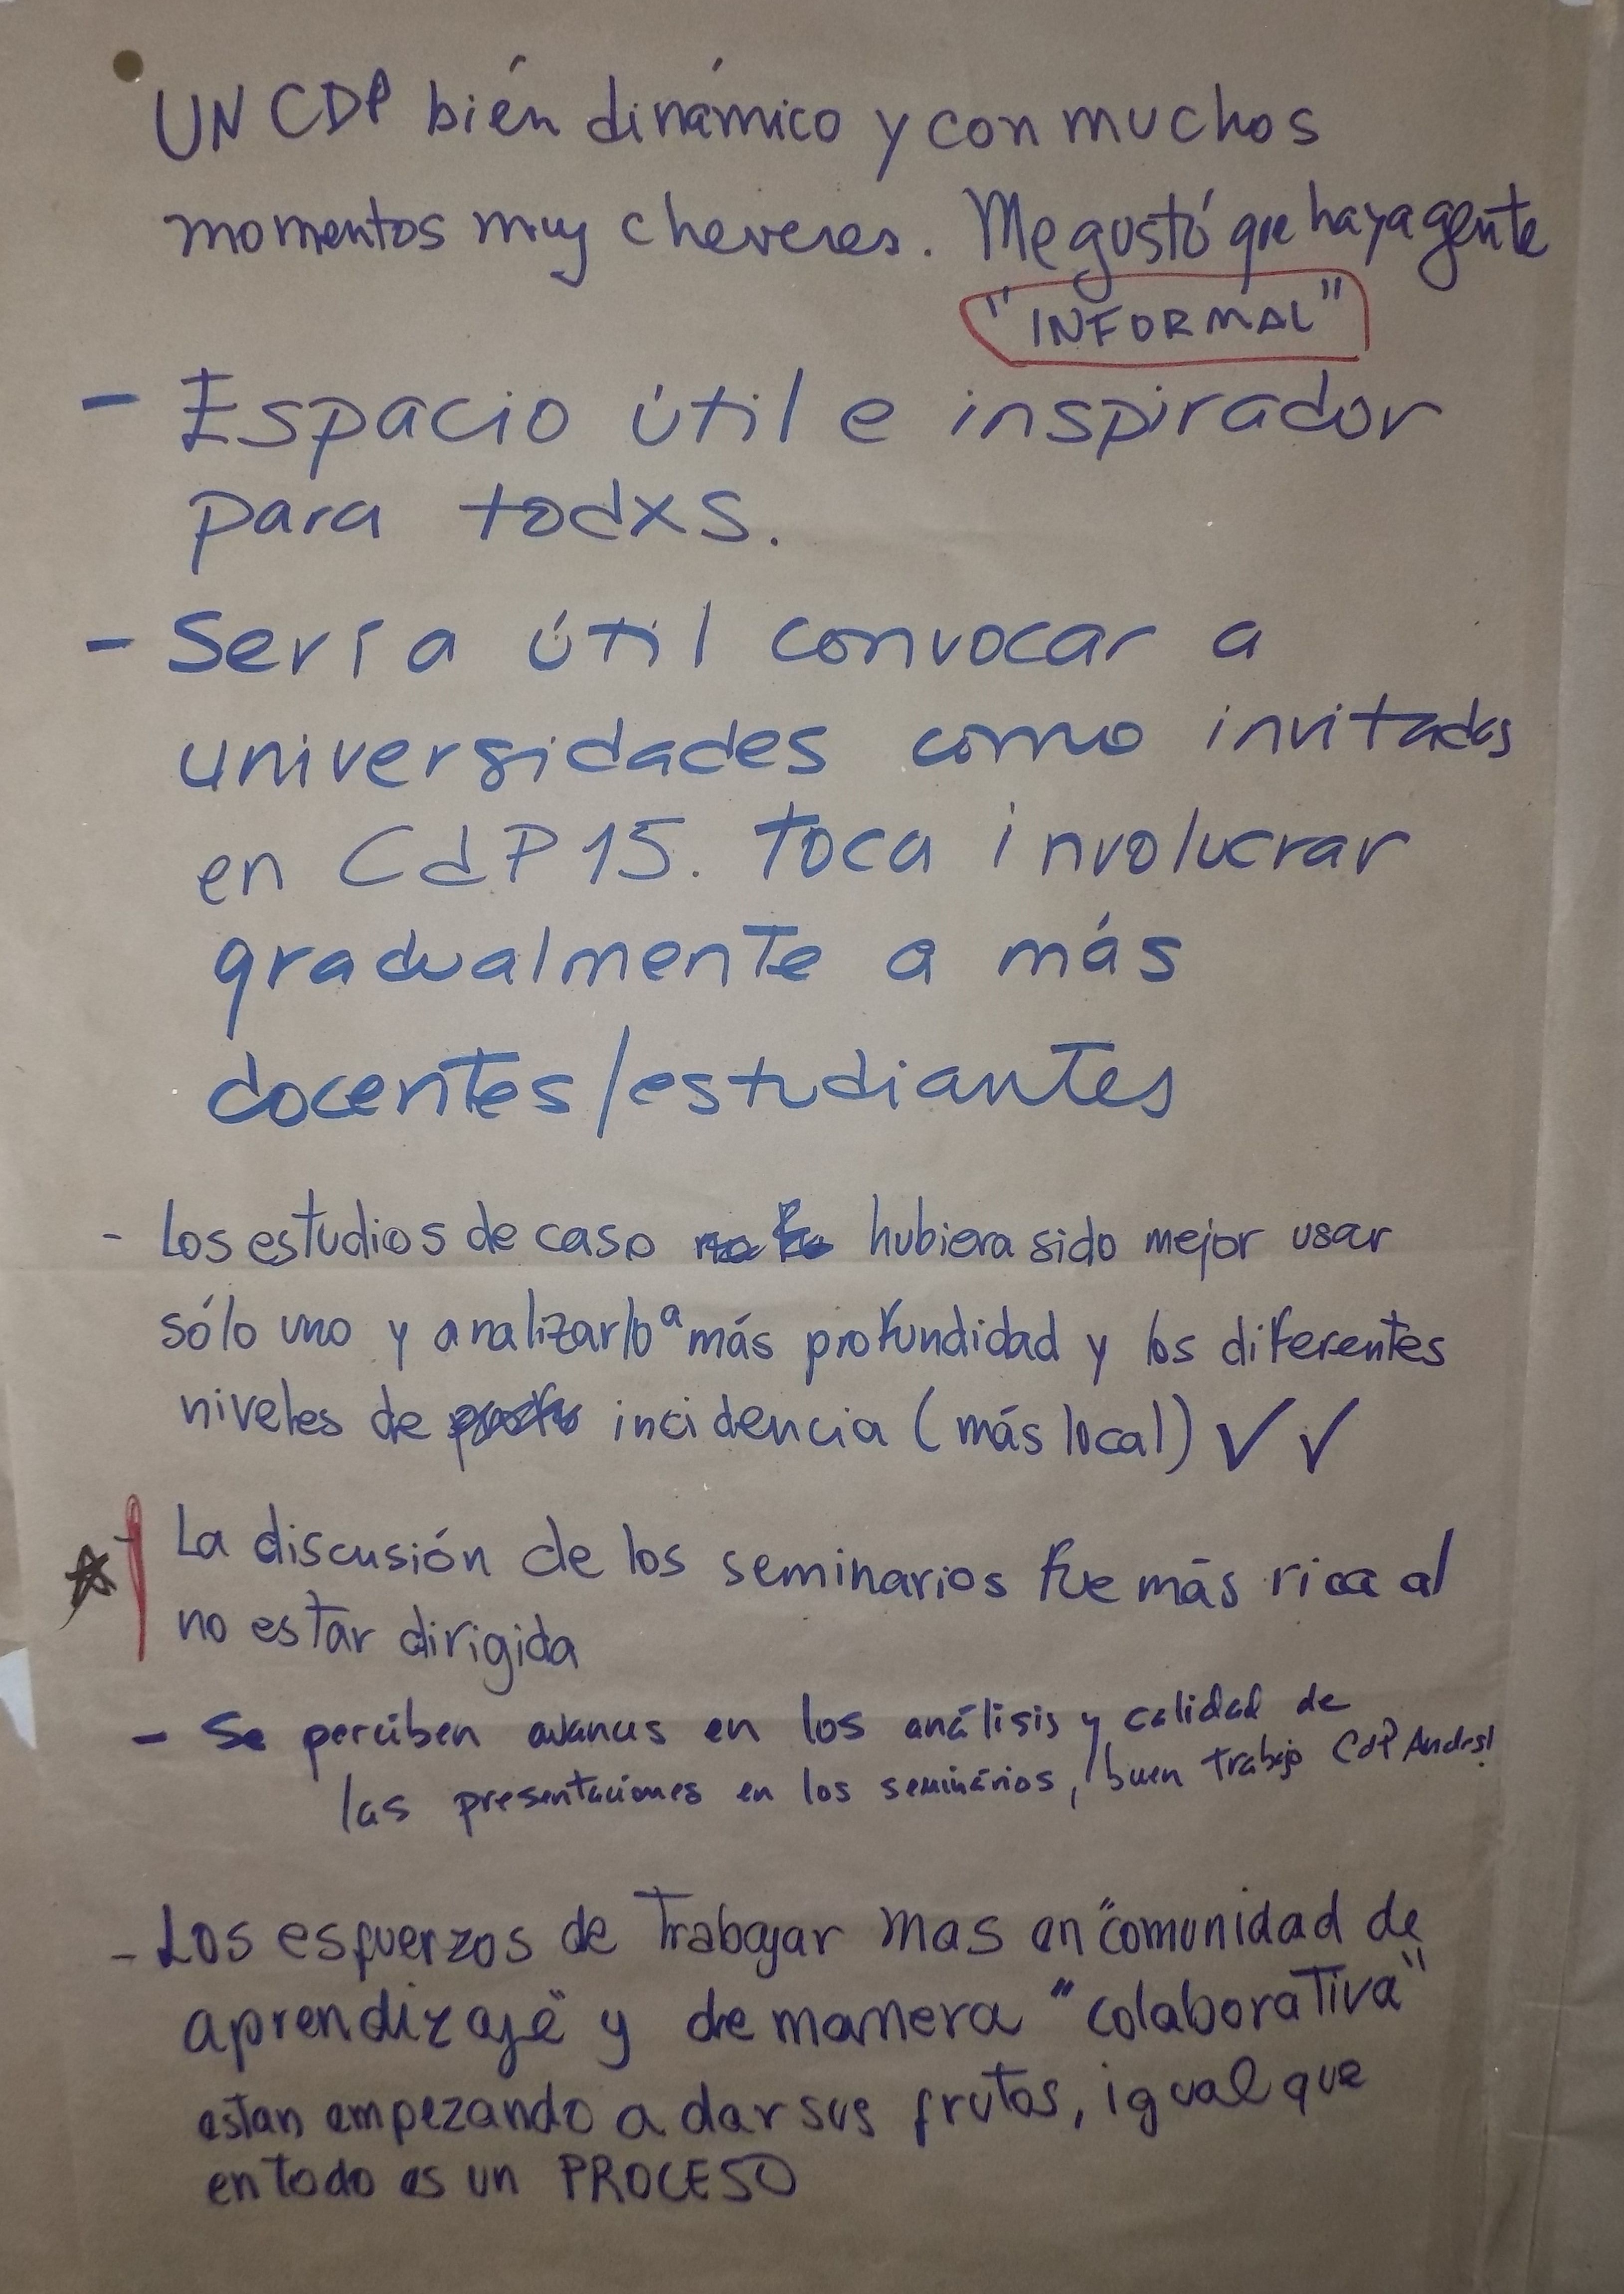 UN CDP bién dinámico y con muchos
momentos muy cheveres. Me gustó que haya gente
"INFORMAL"
- Espacio útil e inspirador
para todxs.
- Sería útil convocar a
universidades como invitadas
en CdP 15. Toca involucrar
gradualmente a más
docentes/estudiantes
- Los estudios de caso hubiera sido mejor usar
sólo uno y analizarlo a más profundidad y los diferentes
niveles de incidencia (más local) ✓ ✓
- La discusión de los seminarios fue más rica al
no estar dirigida
- Se perciben avances en los análisis y calidad de
las presentaciones en los seminários, buen trabajo CdP Andes!
- Los esfuerzos de Trabajar mas en "comunidad de
aprendizaje" y de manera "colaborativa"
estan empezando a dar sus frutos, igual que
en todo es un PROCESO